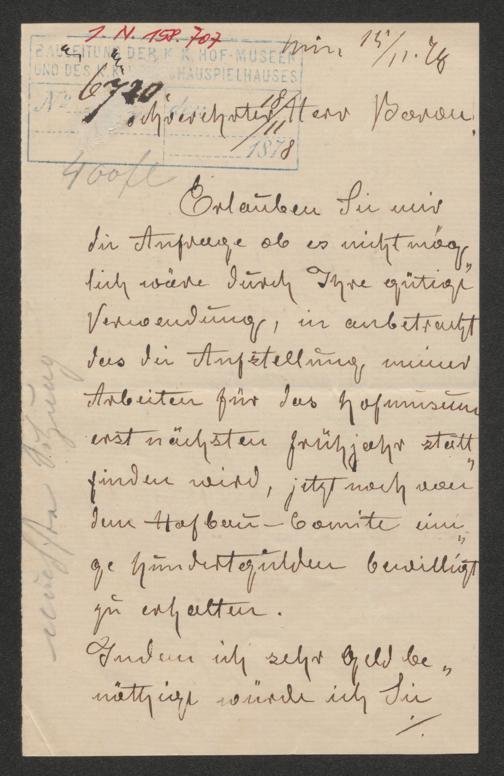 I. N. 158.707
BAULEITUNG DER K.K. HOF-MUSEEN
UND DES K.K. HOFSCHAUSPIELHAUSES
Wien, 15/11. 78
No 6720
18/11 1878
Hochverehrter Herr Baron,
400 fl
Erlauben Sie mir
die Anfrage ob es nicht mög„
lich wäre durch Ihre gütige
Verwendung, in anbetracht
das die Aufstellung meiner
Arbeiten für das Hofmuseum
erst nächsten frühjahr statt„
finden wird, jetzt noch von
dem Hofbau-Comité eini„
ge hundertgulden bewilligt
zu erhalten.
Indem ich sehr Geld be„
nöthige würde ich Sie
./.
nächste Sitzung